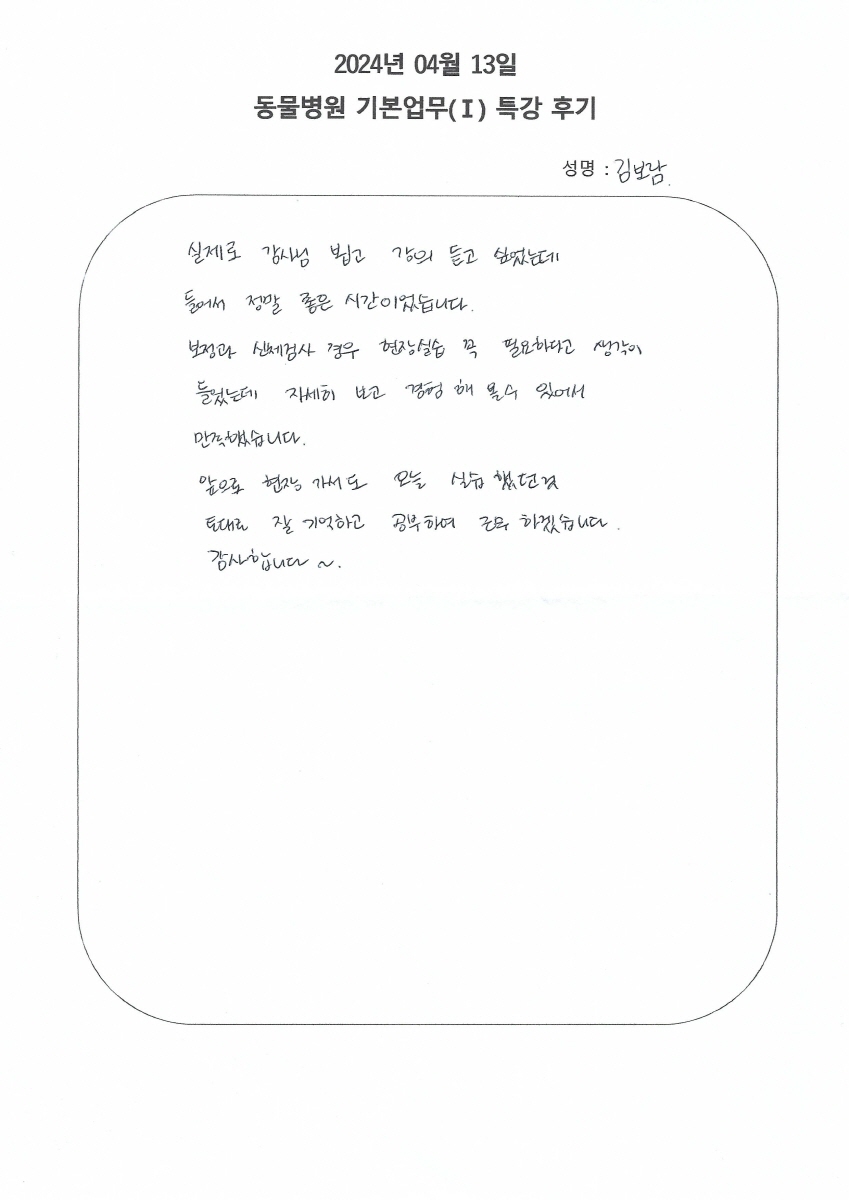 2024년 04월 13일
동물병원 기본업무(I) 특강 후기
성명 : 김보람
실제로 강사님 뵙고 강의 듣고 싶었는데
들어서 정말 좋은 시간이었습니다.
보정과 신체검사 경우 현장실습 꼭 필요하다고 생각이
들었는데 자세히 보고 경험 해 볼수 있어서
만족했습니다.
앞으로 현장 가서도 오늘 실습 했던걸
토대로 잘 기억하고 공부하며 근무 하겠습니다.
감사합니다 ~.